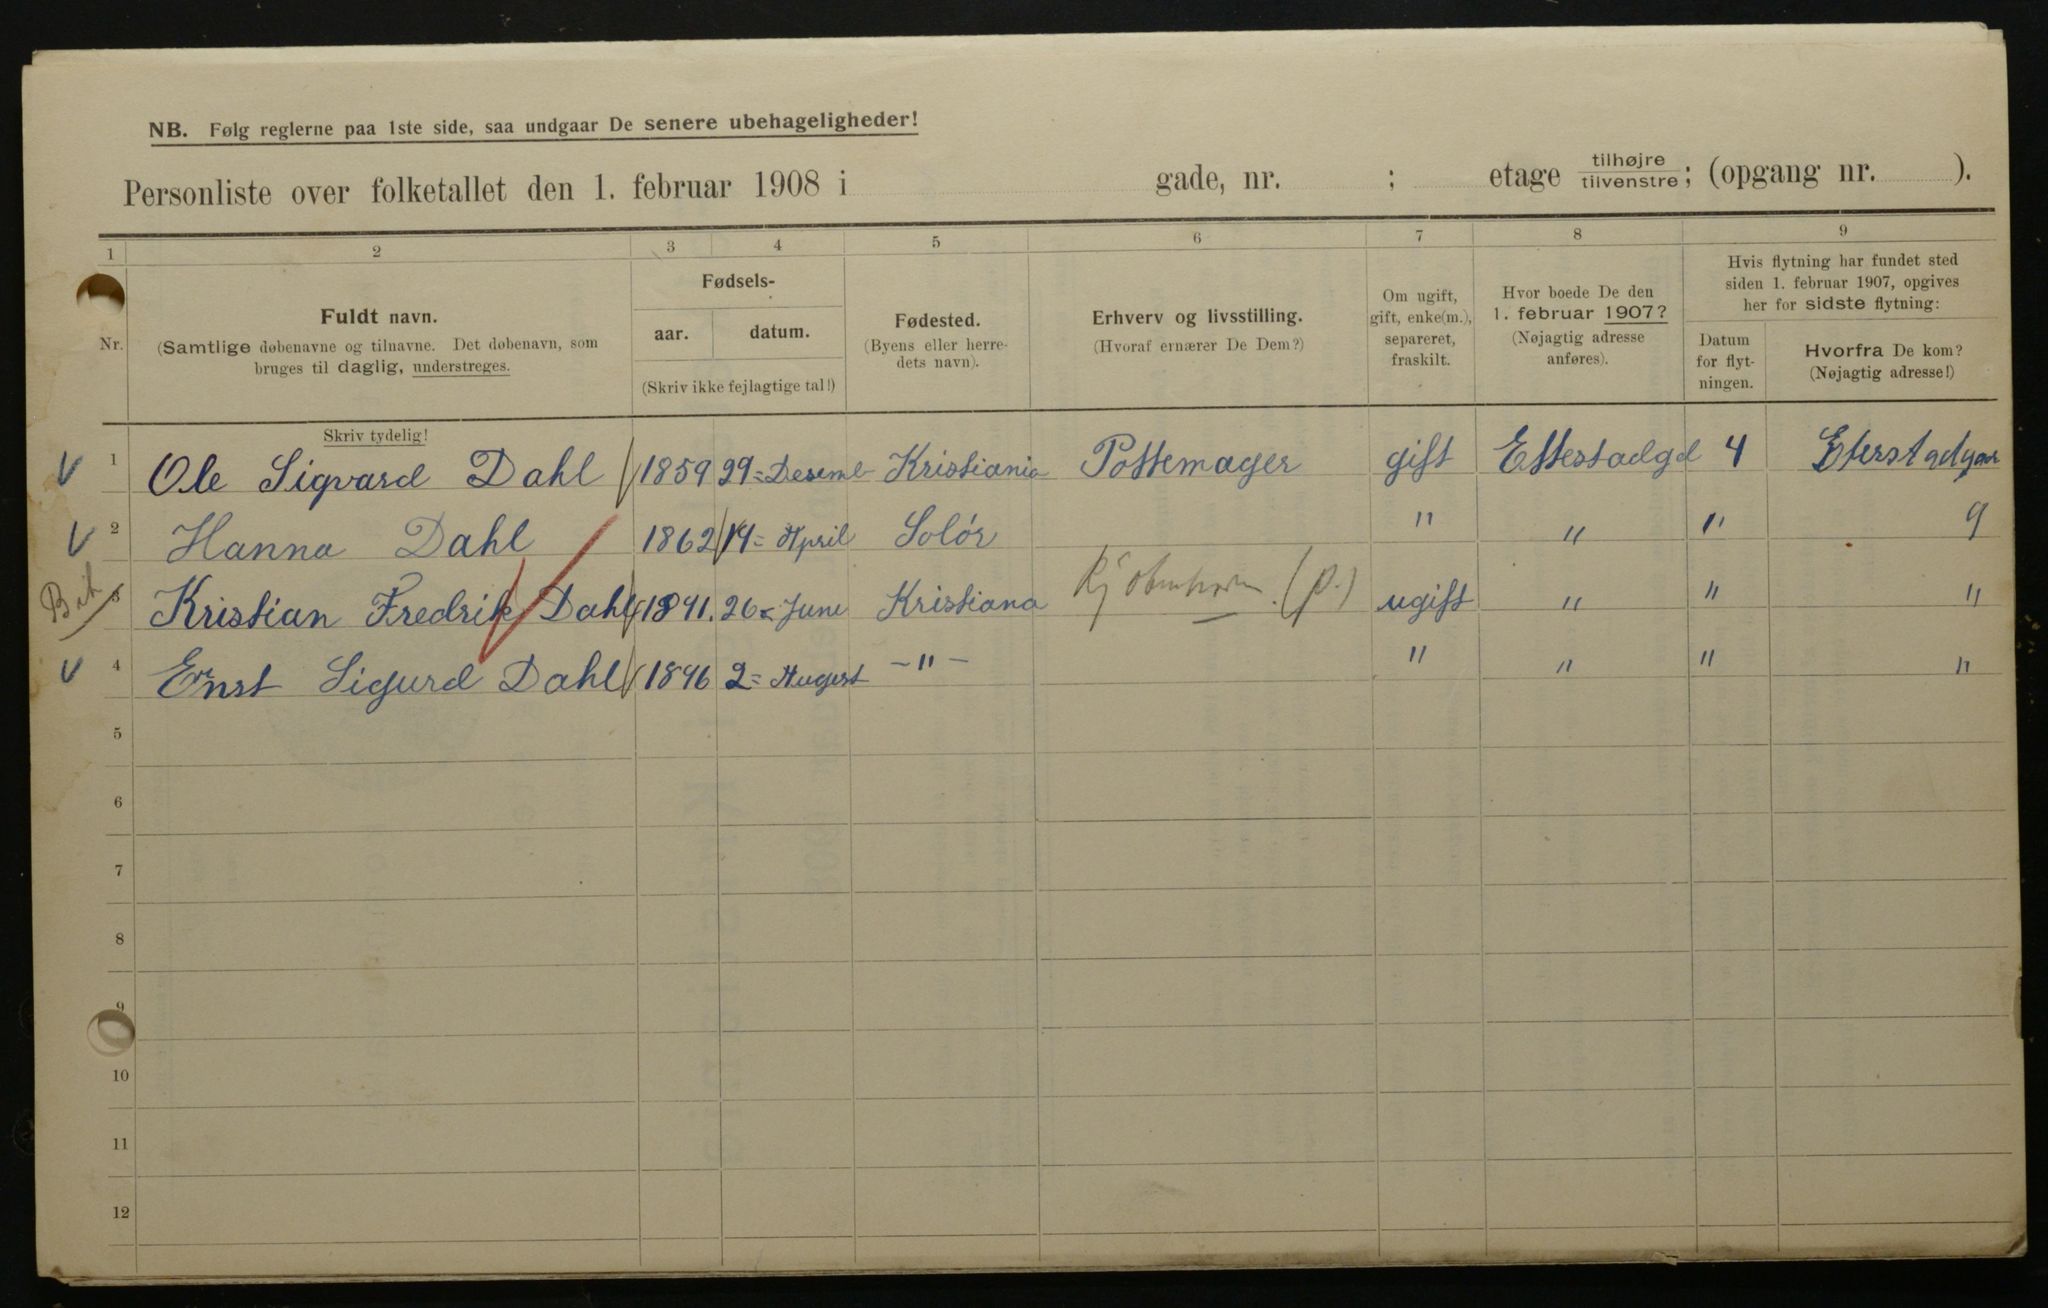 NB. Følg reglerne paa 1ste side, saa undgaar De senere ubehageligheder!
Personliste over folketallet den 1. februar 1908 i gade, nr. ; etage tilhøjre tilvenstre; (opgang nr. ).
1 2 3 4 5 6 7 8 9
Nr.
Fuldt navn.
(Samtlige døbenavne og tilnavne. Det døbenavn, som
bruges til daglig, understreges.
Skriv tydelig!
Fødsels-
aar. datum.
(Skriv ikke fejlagtige tal!)
Fødested.
(Byens eller herre-
dets navn).
Erhverv og livsstilling.
(Hvoraf ernærer De Dem?)
Om ugift,
gift, enke(m.),
separeret,
fraskilt.
Hvor boede De den
1. februar 1907?
(Nøjagtig adresse
anføres).
Hvis flytning har fundet sted
siden 1. februar 1907, opgives
her for sidste flytning:
Datum
for flyt-
ningen.
Hvorfra De kom?
(Nøjagtig adresse!)
1 Ole Sigvard Dahl 1859 29= Desemb Kristiania Pottemager gift Ettestadgd 4
2 Hanna Dahl 1862 14= April Solör " " " 9
3 Kristian Fredrik Dahl 1891. 26= June Kristiana Kjöbenhavn (p.) ugift " " "
4 Ernst Sigurd Dahl 1896 2= Augest -"- " " " "
5
6
7
8
9
10
11
12